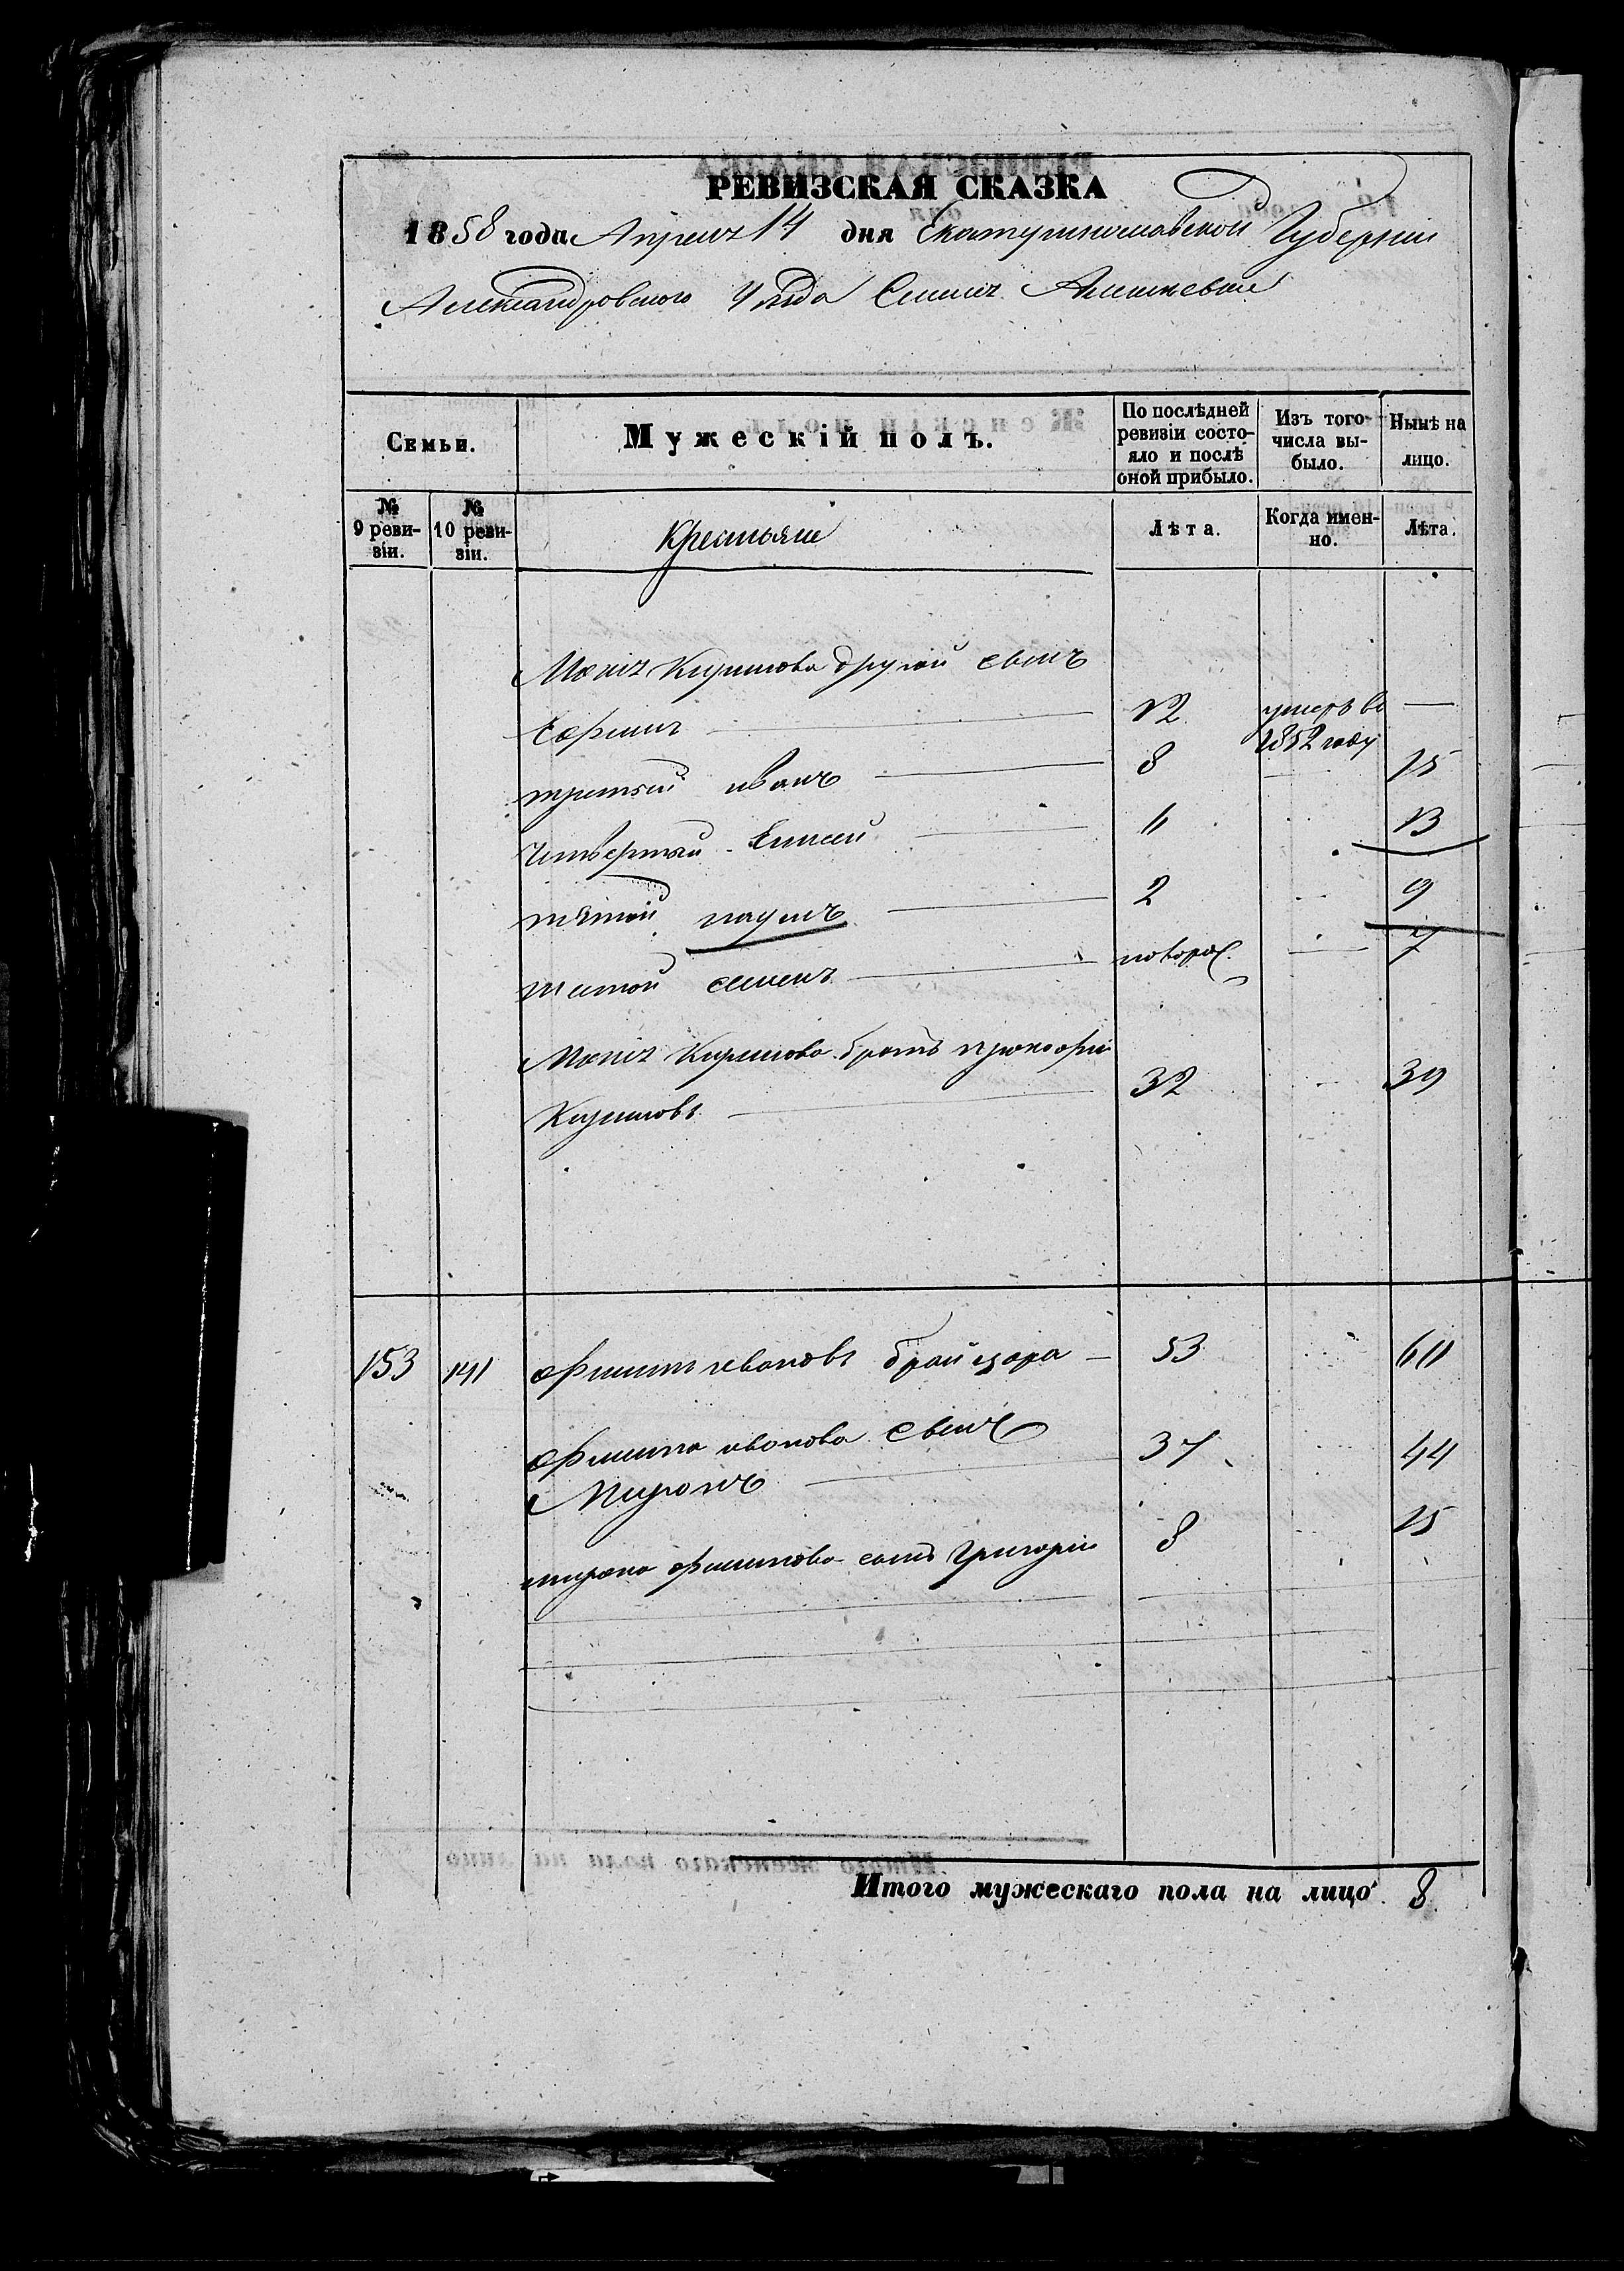 РЕВИЗСКАЯ СКАЗКА
1858 года Апреля 14 дня Екатеринославской Губернии
Александровского Уезда Селения
Семьи.
Мужескій полъ.
По послѣдней ревизіи состояло и послѣ оной прибыло.
Изъ того числа выбыло.
Нынѣ на лицо.
№ 9 ревизіи.
№ 10 ревизіи.
Крестьяне
Лѣта.
Когда именно.
Лѣта.
Кирилова другой сынъ
Ефимъ 12 умеръ въ 1852 году —
третий иванъ 8 15
четвертый Елисей 6 13
пятый наумъ 2 9
шестой семенъ новорож. 7
Кирилова братъ прокофий
Кириловъ 32 39
153 141 филипъ ивановъ 53 60
филипа иванова сынъ
Миронъ 37 44
мирона филипова сынъ Григорий 8 15
Итого мужескаго пола на лицо 8